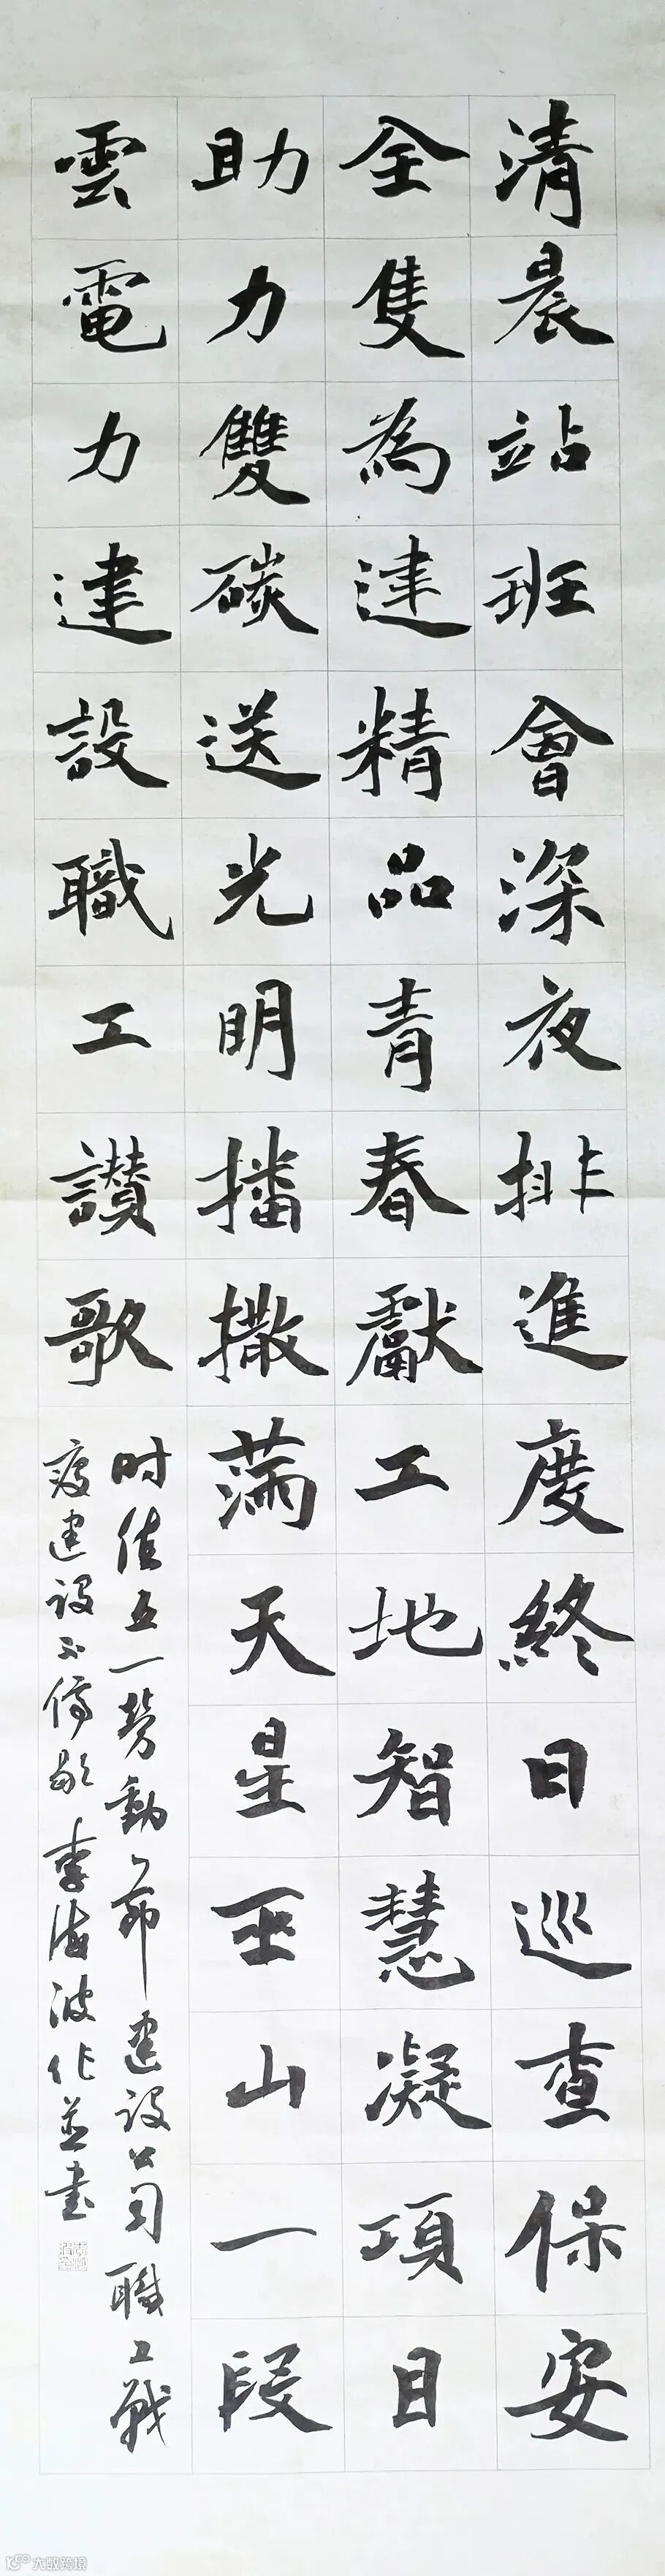 清晨站班會深夜排進度終日巡查保安
全隻為建精品青春獻工地智慧凝項目
助力雙碳送光明播撒滿天星巫山一段
雲電力建設職工讚歌
时值五一勞動節建设公司職工戰
疫建设不停歇李海波作並書
大数跨境